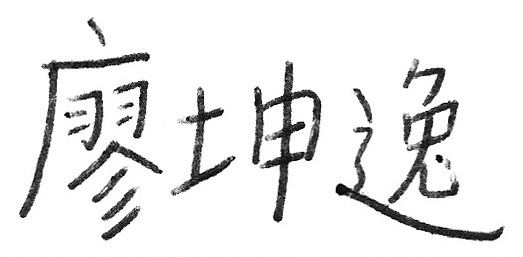 廖坤逸